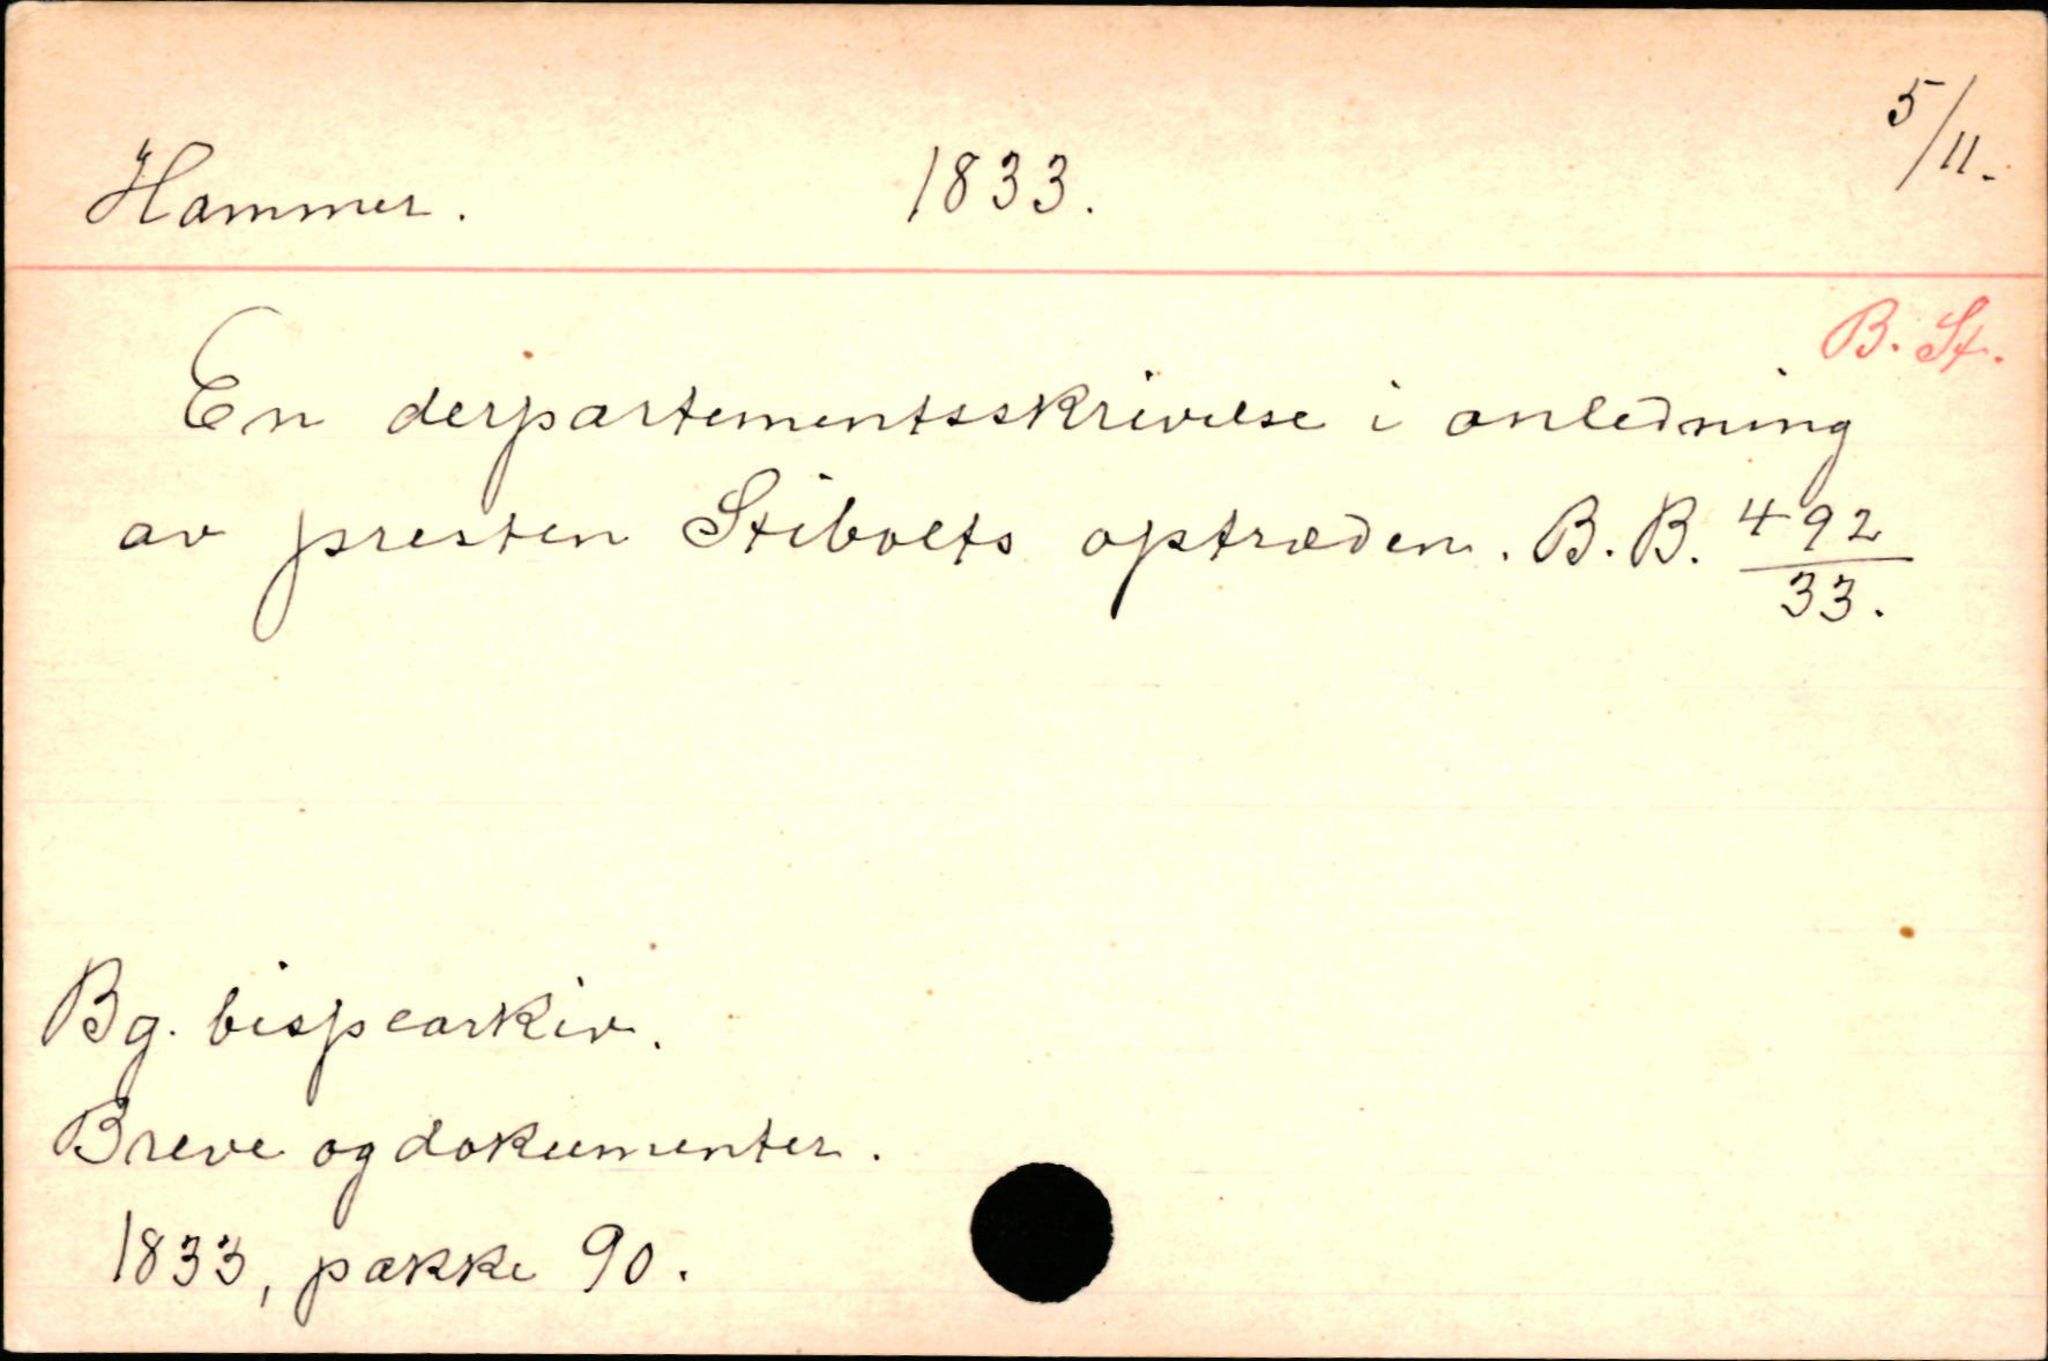 Hammer. 1833. 5/11.
B. St.
En derpartementsskrivelse i anledning
av presten Stibolts optræden. B. B. 492/33.
Bg. bispearkiv.
Breve og dokumenter.
1833, pakke 90.